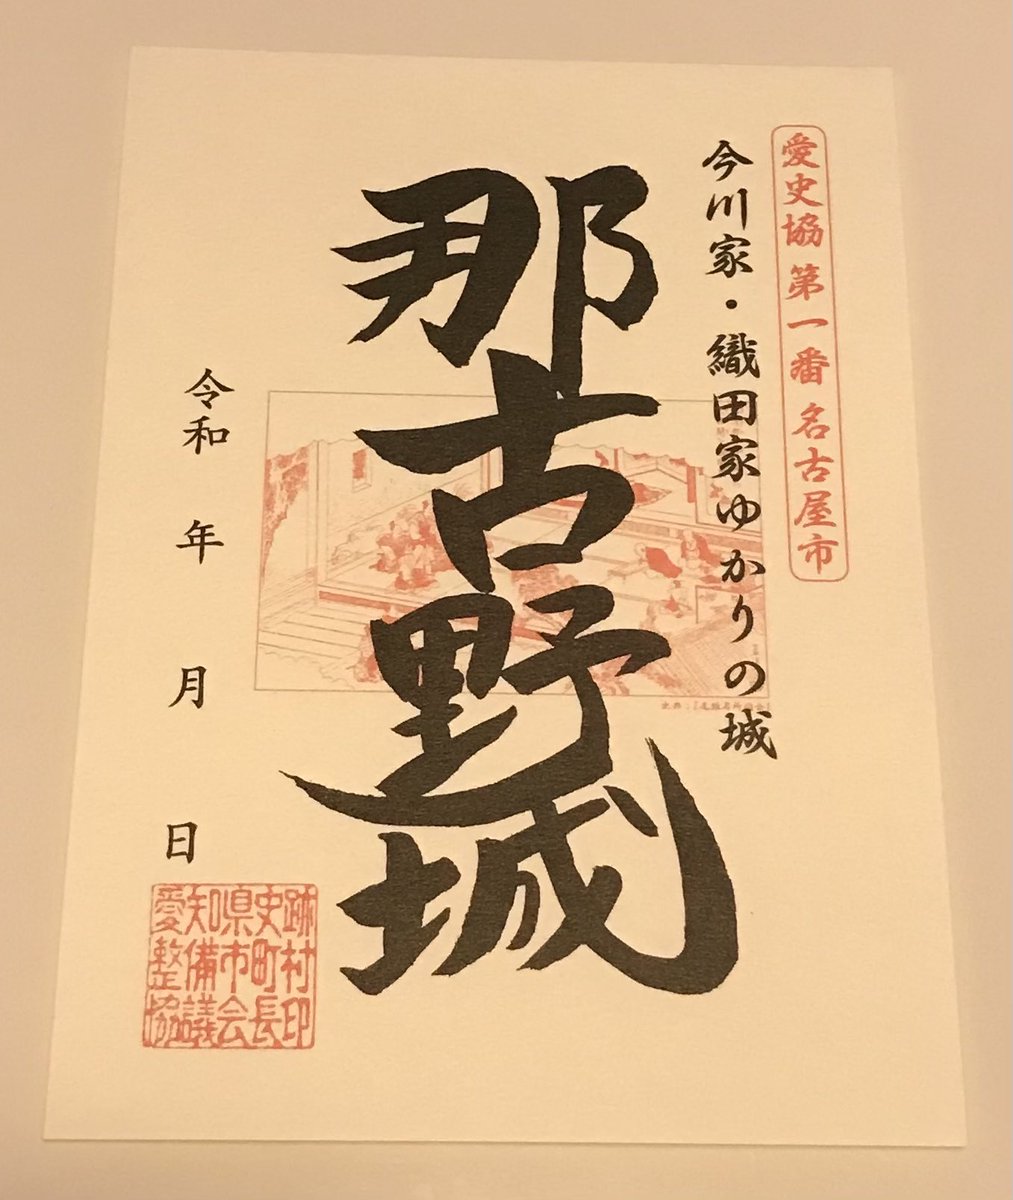 愛史協 第一番 名古屋市
今川家・織田家ゆかりの城
那古野城
出典：『尾張名所図会』
令和 年 月 日
愛知県史跡
整備市町村
協議会長印